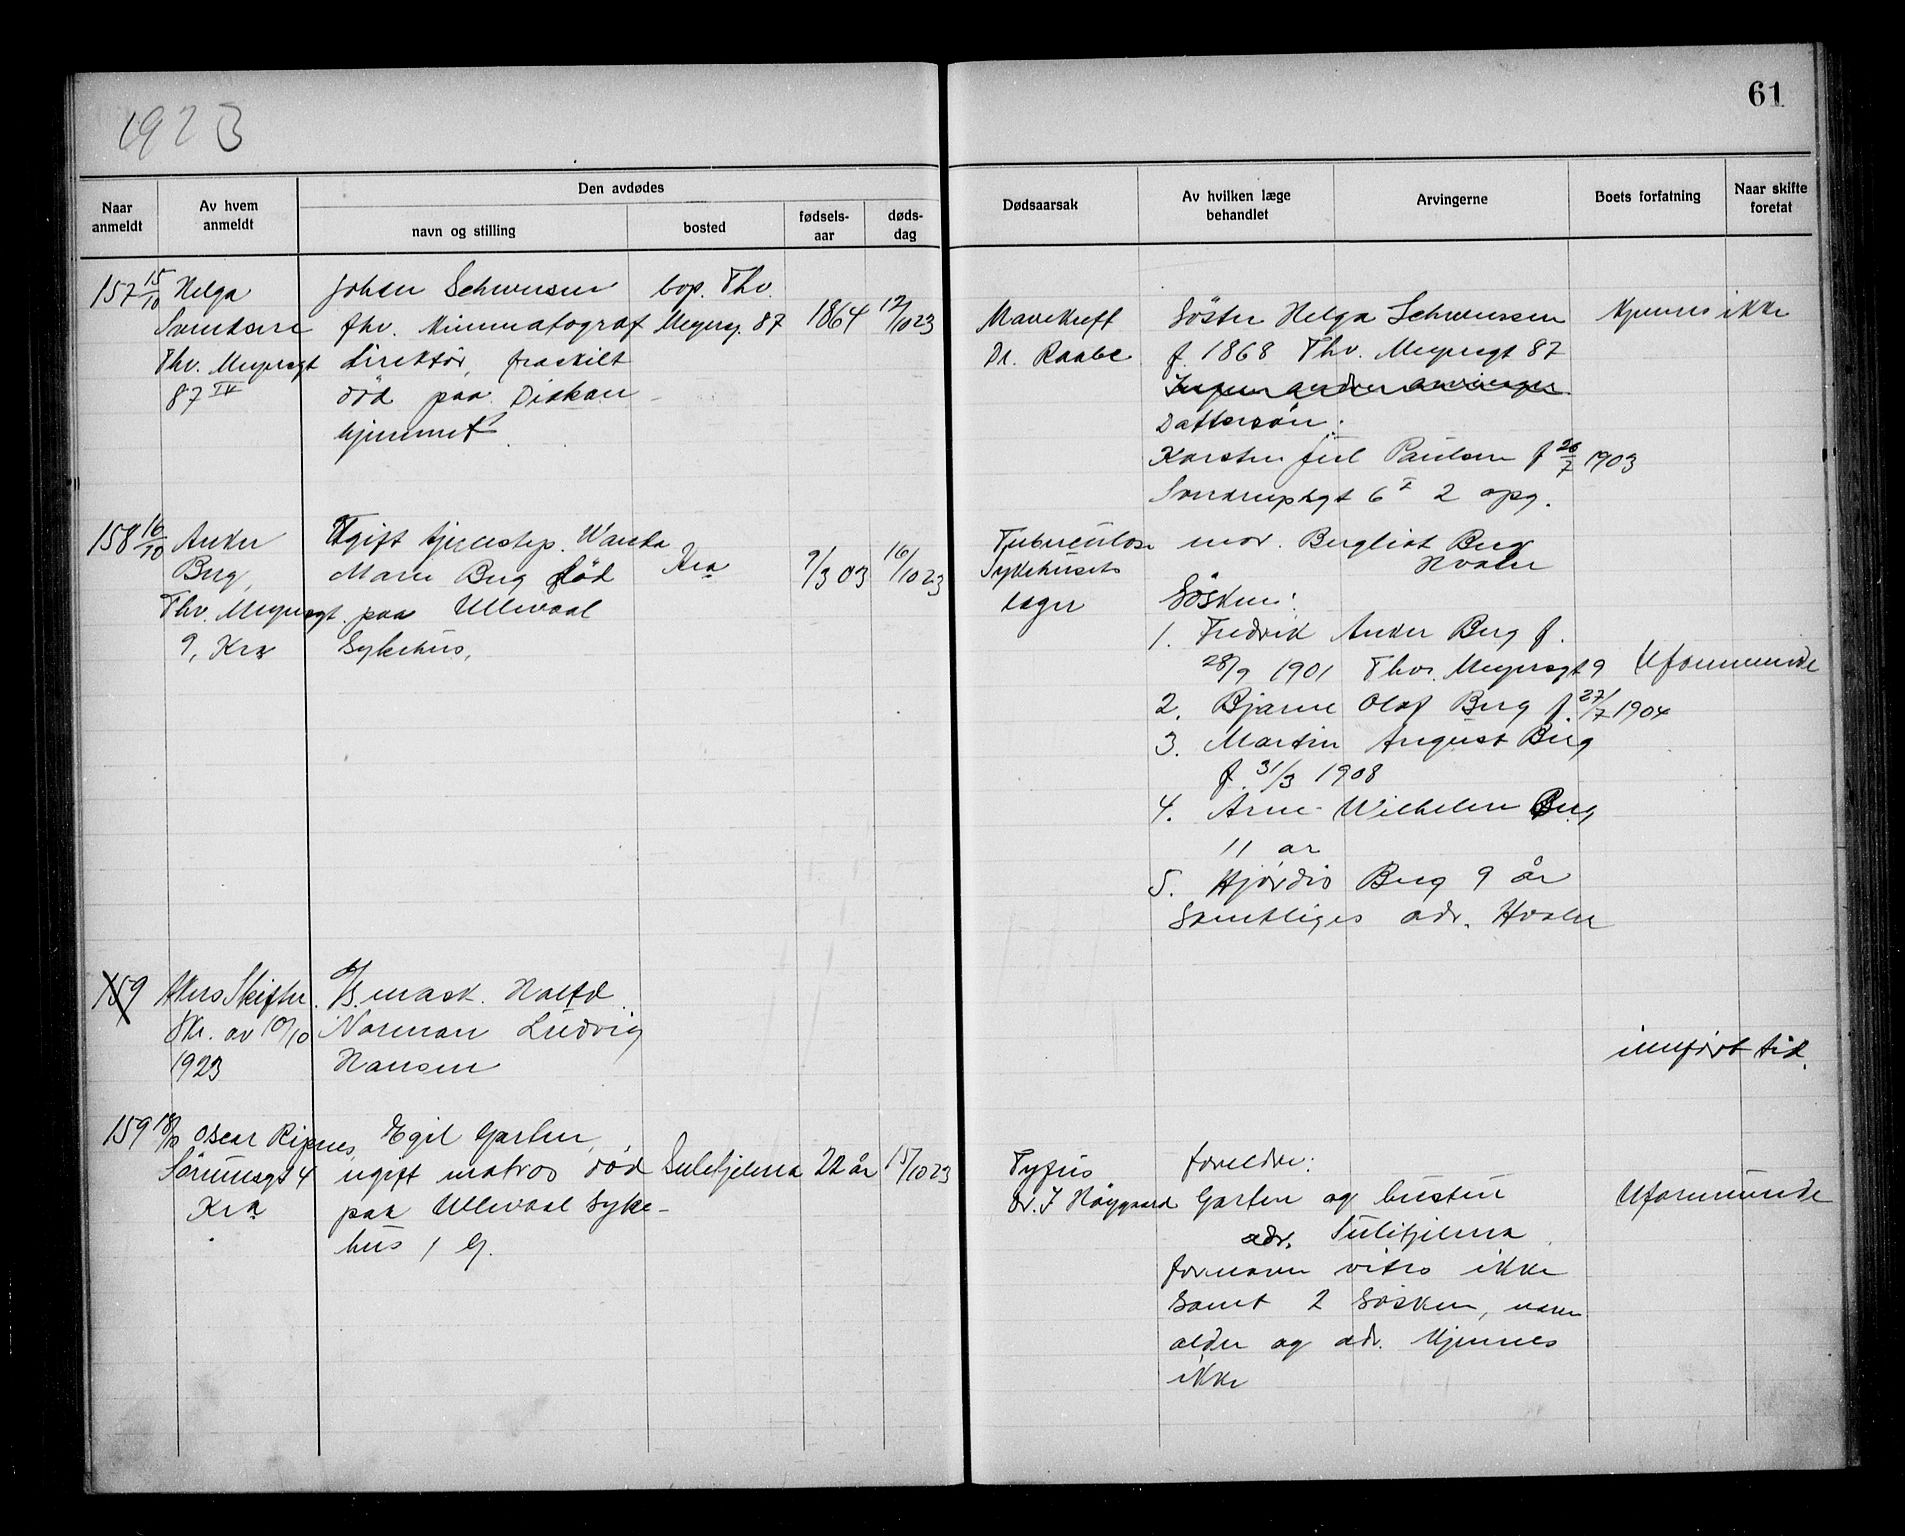 1923
61
Naar anmeldt
Av hvem anmeldt
Den avdødes
navn og stilling
bosted
fødsels-aar
døds-dag
Dødsaarsak
Av hvilken læge behandlet
Arvingerne
Boets forfatning
Naar skifte foretat
157 15/10 Helga
Thv. Meyersgt
87 IV
Johan Schwensen
fhv. kinematograf
direktør, fraskilt
død paa Diakon
hjemmet
bop. Thv.
Meyersg. 87
1864
12/10 23
Mavekreft
Dr. Raabe
Söster Helga Schwensen
f. 1868 Thv. Meyersgt 87
Ingen andre arvinger
Dattersön:
Karsten Juel Paulsen f 26/7 1903
6 I 2 opg.
kjennes ikke
158 16/10 Anker
Berg,
Thv. Meyersgt.
9, Kra
Ugift tjenestep. Wanda
Marie Berg død
paa Ullevaal
Sykehus,
Kra
9/3 03
16/10 23
Tuberculose
Sykehusets
læger
mor. Bergliot Berg
Hvaler
Søsken:
1. Fredrik Anker Berg f.
28/9 1901 Thv. Meyersgt 9
2. Bjarne Olaf Berg f. 27/7 1904
3. Martin August Berg
f. 31/3 1908
4. Arne Wilhelm Berg
11 ar
5. Hjørdis Berg 9 år
Samtliges adr. Hvaler
Uformuende
159 Akers Skifter.
skr. av 10/10
1923
mask. Halfd.
Norman Ludvig
Hansen
innført tid.
159 18/10 Oscar Ripnes,
Sörumsgt 4
Kra
Egil Garten,
ugift matros død
paa Ullevaal syke-
hus 1 G.
Sulitjelma
22 år
15/10 23
Tyfus
Dr. I Høygaard
foreldre:
Garten og hustru
adr. Sulitjelma
fornavn vites ikke
samt 2 søsken, navn
alder og adr. kjennes
ikke
Uformuende